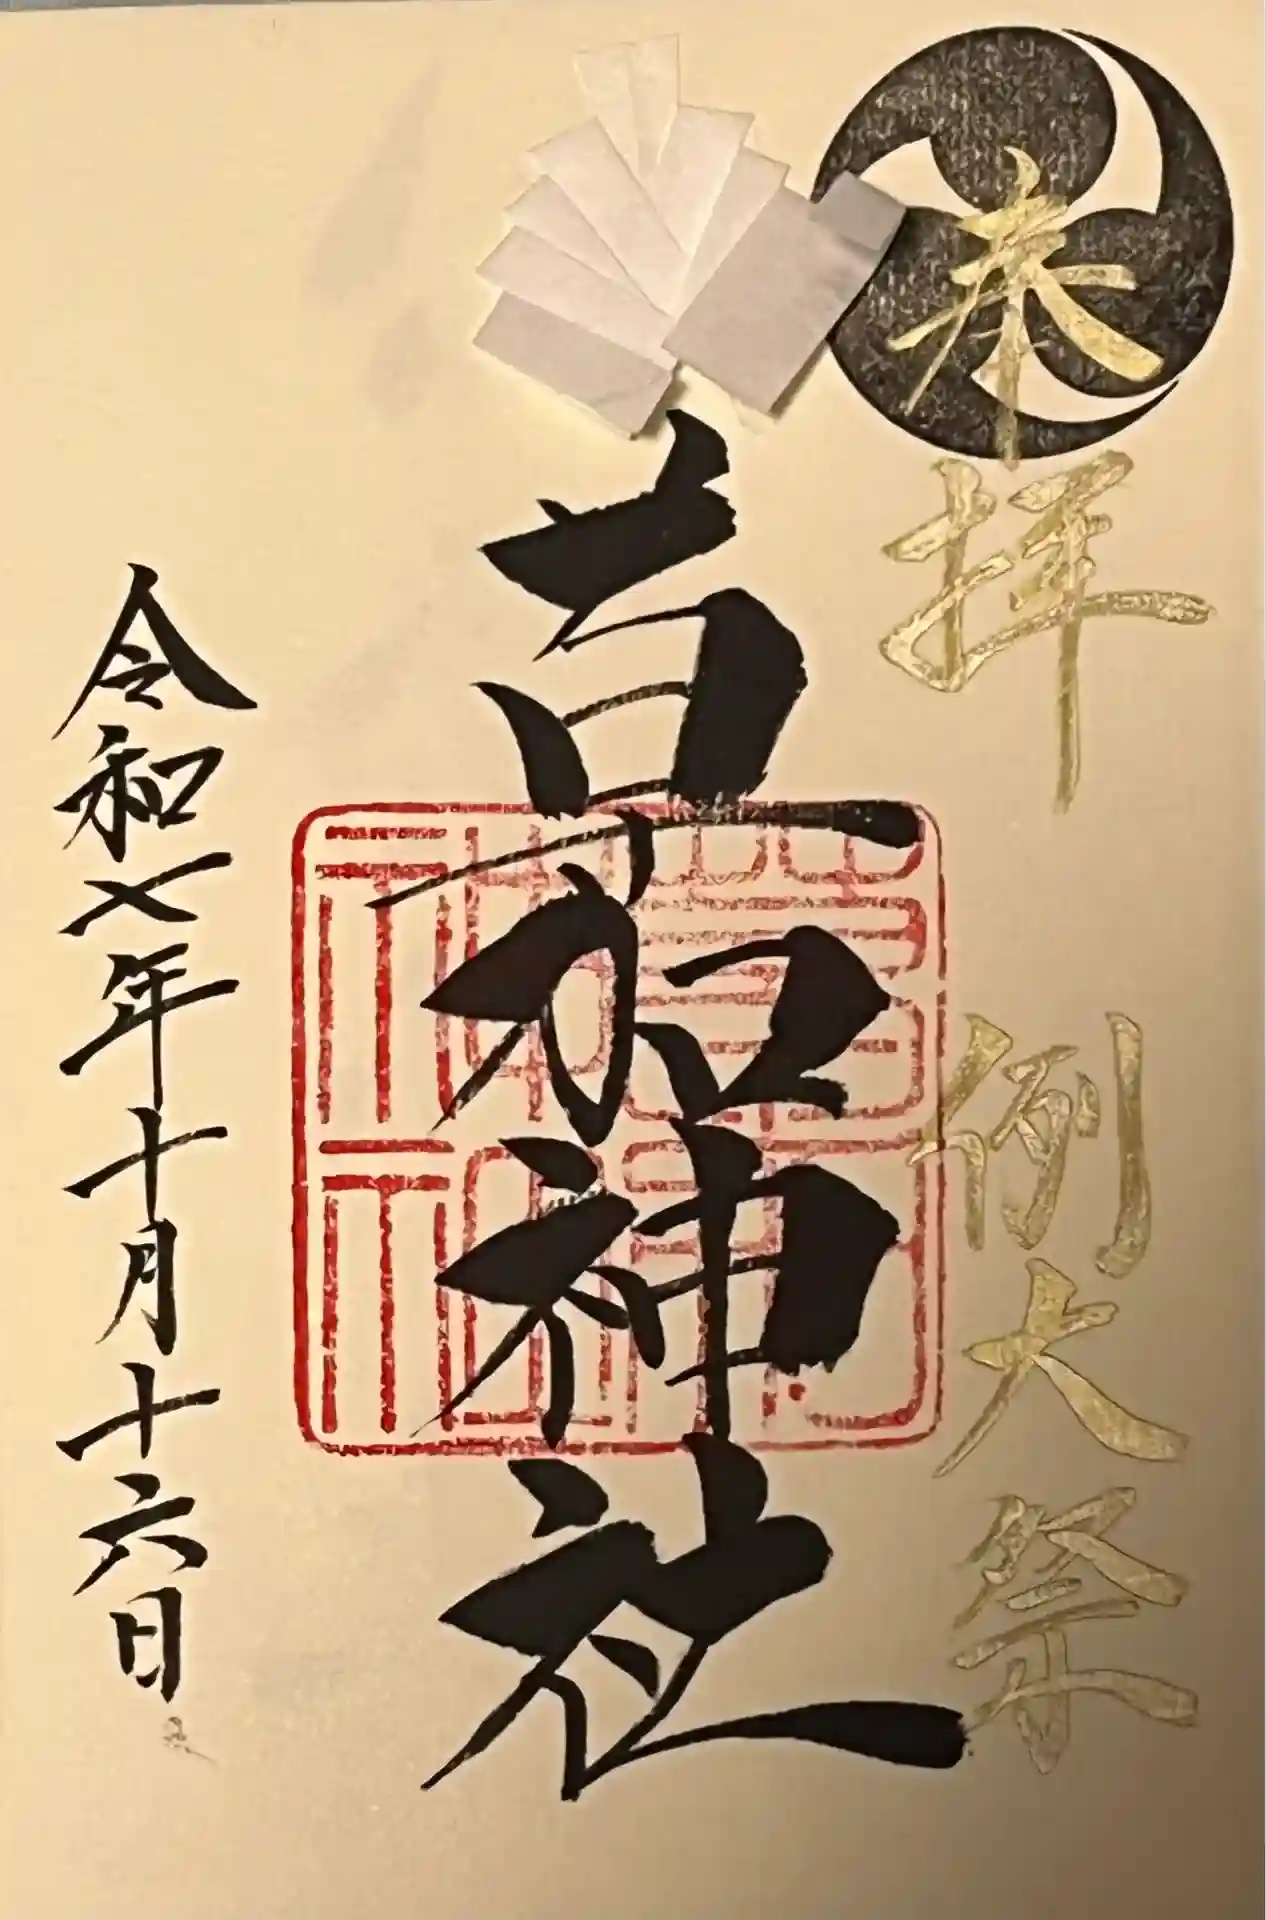 奉拝　例大祭
草加神社
令和七年十月十六日